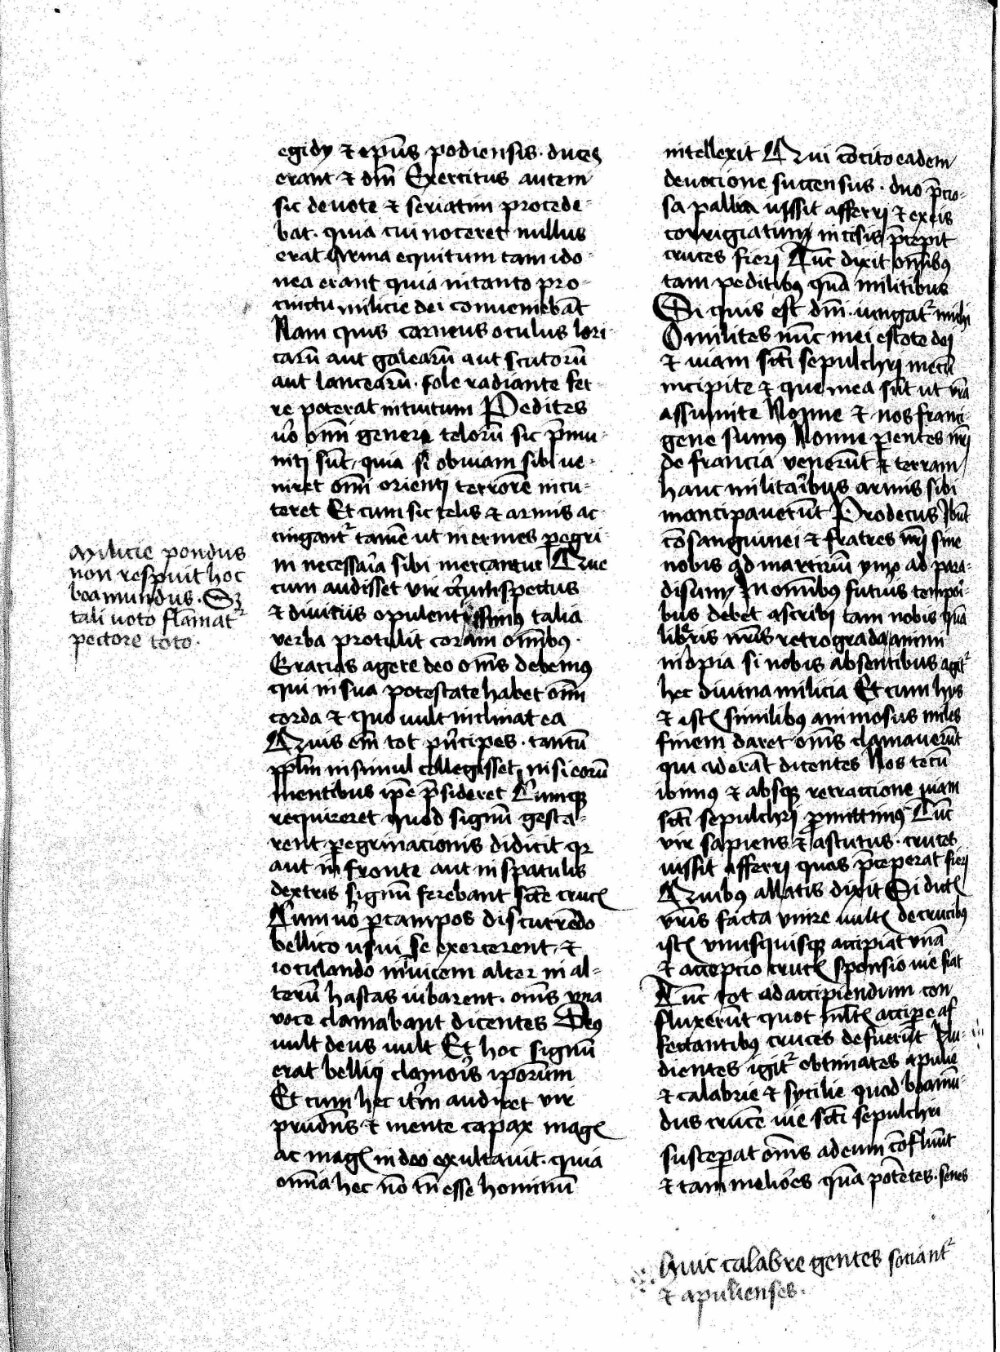 egidy & ep̄us podiensis · duces
erant & dn̄i Exercitus autem
sic deuote & seriatim procede-
bat · quia cui noceret nullus
erat Arma equitum tam ido-
nea erant quia in tanto pro-
cinctu milicie dei conueniebāt
Nam quis carneus oculus lori-
carū aut galearū aut scutorū
aut lancearū · sole radiante fer-
re poterat intuitum Pedites
ūo om̄i genere telorū sic p̄mu-
niti sūt, quia si obuiam sibi ue-
niret om̄i orienti terrorē incu-
teret Et cum sic telis & armis ac-
cingant᷑ tamē ut inermes pegri-
ni necessaria sibi mercantur Que
cum audisset vir circumspectus
& diuitiis opulentissimus talia
verba protulit coram om̄ibus ·
Gratias agere deo om̄s debemus
qui in sua potestate habet om̄i
corda & quo uult inclinat ea
Quis em̄ tot p̄ncipes · tantū
pplm̄ in simul collegisset, nisi eorū
mentibus ip̄e p̄sideret Cumque
requireret quod signū gesta-
rent pegrinacionis didicit qr
aut in fronte aut in spatulis
dextris signū ferebant scē crucꝭ
Cum ūo p campos discurrēdo
bellico usui se exercerent · &
ioculando inuicem alter in al-
terū hastas uibarent · om̄s vna
voce clamabant dicentes Deus
uult deus uult Et hoc signū
erat belliq clamoris ipsorum
Et cum hec itm̄ audiret vir
prudēns & mente capax magꝭ
ac magꝭ in deo exultauit · quia
om̄ia hec nō tn̄ esse hominū
Milicie pondus
non respuit hoc
boamundus · Sꝫ
tali uoto flāmat᷑
pectore toto ·
intellexit Qui cōcito eadem
deuocione succensus · duo p̄cio-
sa pallia iussit afferri & ex eis
corrigiatim incisis p̄cepit
cruces fieri Tūc dixit om̄ibus
tam peditibus quā militibus
Si quis est dn̄i · iungat᷑ mihi
O milites nūc mei estote dei
& uiam scti sepulchri mecū
incipite & que mea sūt ut vrā
assumite Nonne & nos franci-
gene sumus Nonne pentes nri
de francia venerūt & terram
hanc militaribus armis sibi
mancipauerūt Prodecus Ibūt
cōsanguinei & fratres nri sine
nobis ad martiriū ymo ad para-
disum In om̄ibus futuris tempori-
bus debet ascribi tam nobis quā
libris nris retrograda animi
inopia si nobis absentibus agit᷑
hec diuina milicia Et cum hys
& istꝭ similibus animosus miles
finem daret om̄s clamauerūt
qui aderāt dicentes Nos tecū
ibimus & absque retractione uiam
scti sepulchri pmittimus Tūc
vir sapiens & astutus · cruces
iussit afferri quas p̄ceperat fieri
Quibus allatis dixit Si dictꝭ
vris facta vnire uultꝭ de crucibus
istꝭ vnusquisque accipiat vnā
& accepcio crucꝭ sponsio uie fiat
Tūc tot ad accipiendum con-
fluxerūt quot mltꝭ accipe af-
fectantibus cruces defuerūt
dientes igit᷑ obtimates apulie
& calabrie & sycilie quod boamū-
dus crucē uie scti sepulchri
susceperat om̄s ad eum cōfluūt
& tam meliores quā potētes · senes
huic calabre gentes sociant᷑
& apulienses ·